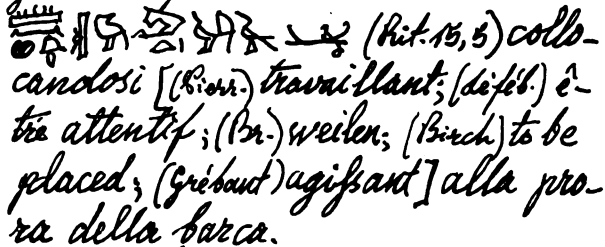 (Rit. 15, 5) collo-
candosi [(Pierr.) travaillant; (déféb.) ê-
tre attentif; (Br.) weilen; (Birch) to be
placed; (Grébaut) agissant] alla pro-
ra della barca.